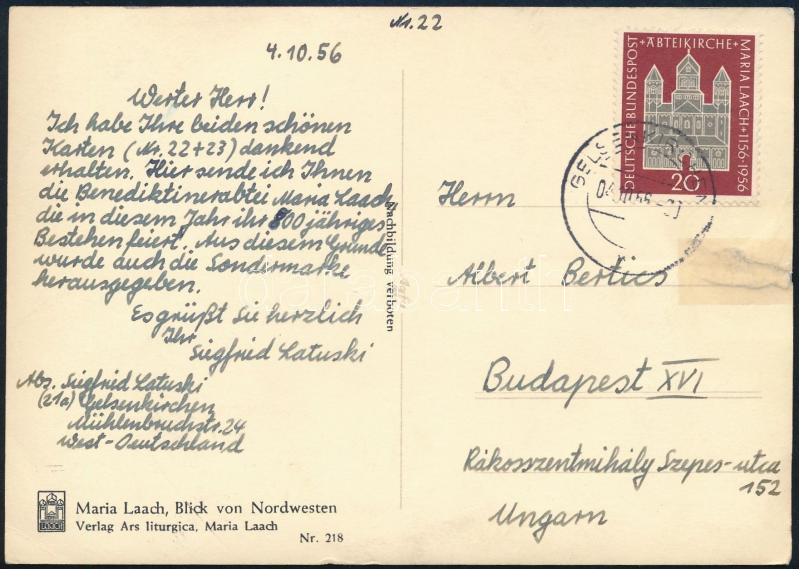 Nr. 22
4.10.56
Werter Herr!
Ich habe Ihre beiden schönen
Karten (Nr. 22+23) dankend
erhalten. Hier sende ich Ihnen
die Benediktinerabtei Maria Laach,
die in diesem Jahr ihr 800 jähriges
Bestehen feiert. Aus diesem Grunde
wurde auch die Sondermarke
herausgegeben.
Es grüßt Sie herzlich
Ihr
Siegfried Latuski
Abs. Siegfried Latuski
(21a) Gelsenkirchen
Mühlenbruchstr. 24
West-Deutschland
LAACH
Maria Laach, Blick von Nordwesten
Verlag Ars liturgica, Maria Laach
Nr. 218
Nachbildung verboten
DEUTSCHE BUNDESPOST
+ABTEIKIRCHE+
MARIA LAACH+1156-1956
20
Herrn
Albert Bertics
Budapest XVI
Rákosszentmihály Szepes-utca
152
Ungarn
darabanth